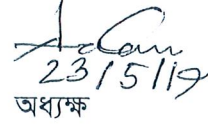 23/5/19
অধ্যক্ষ